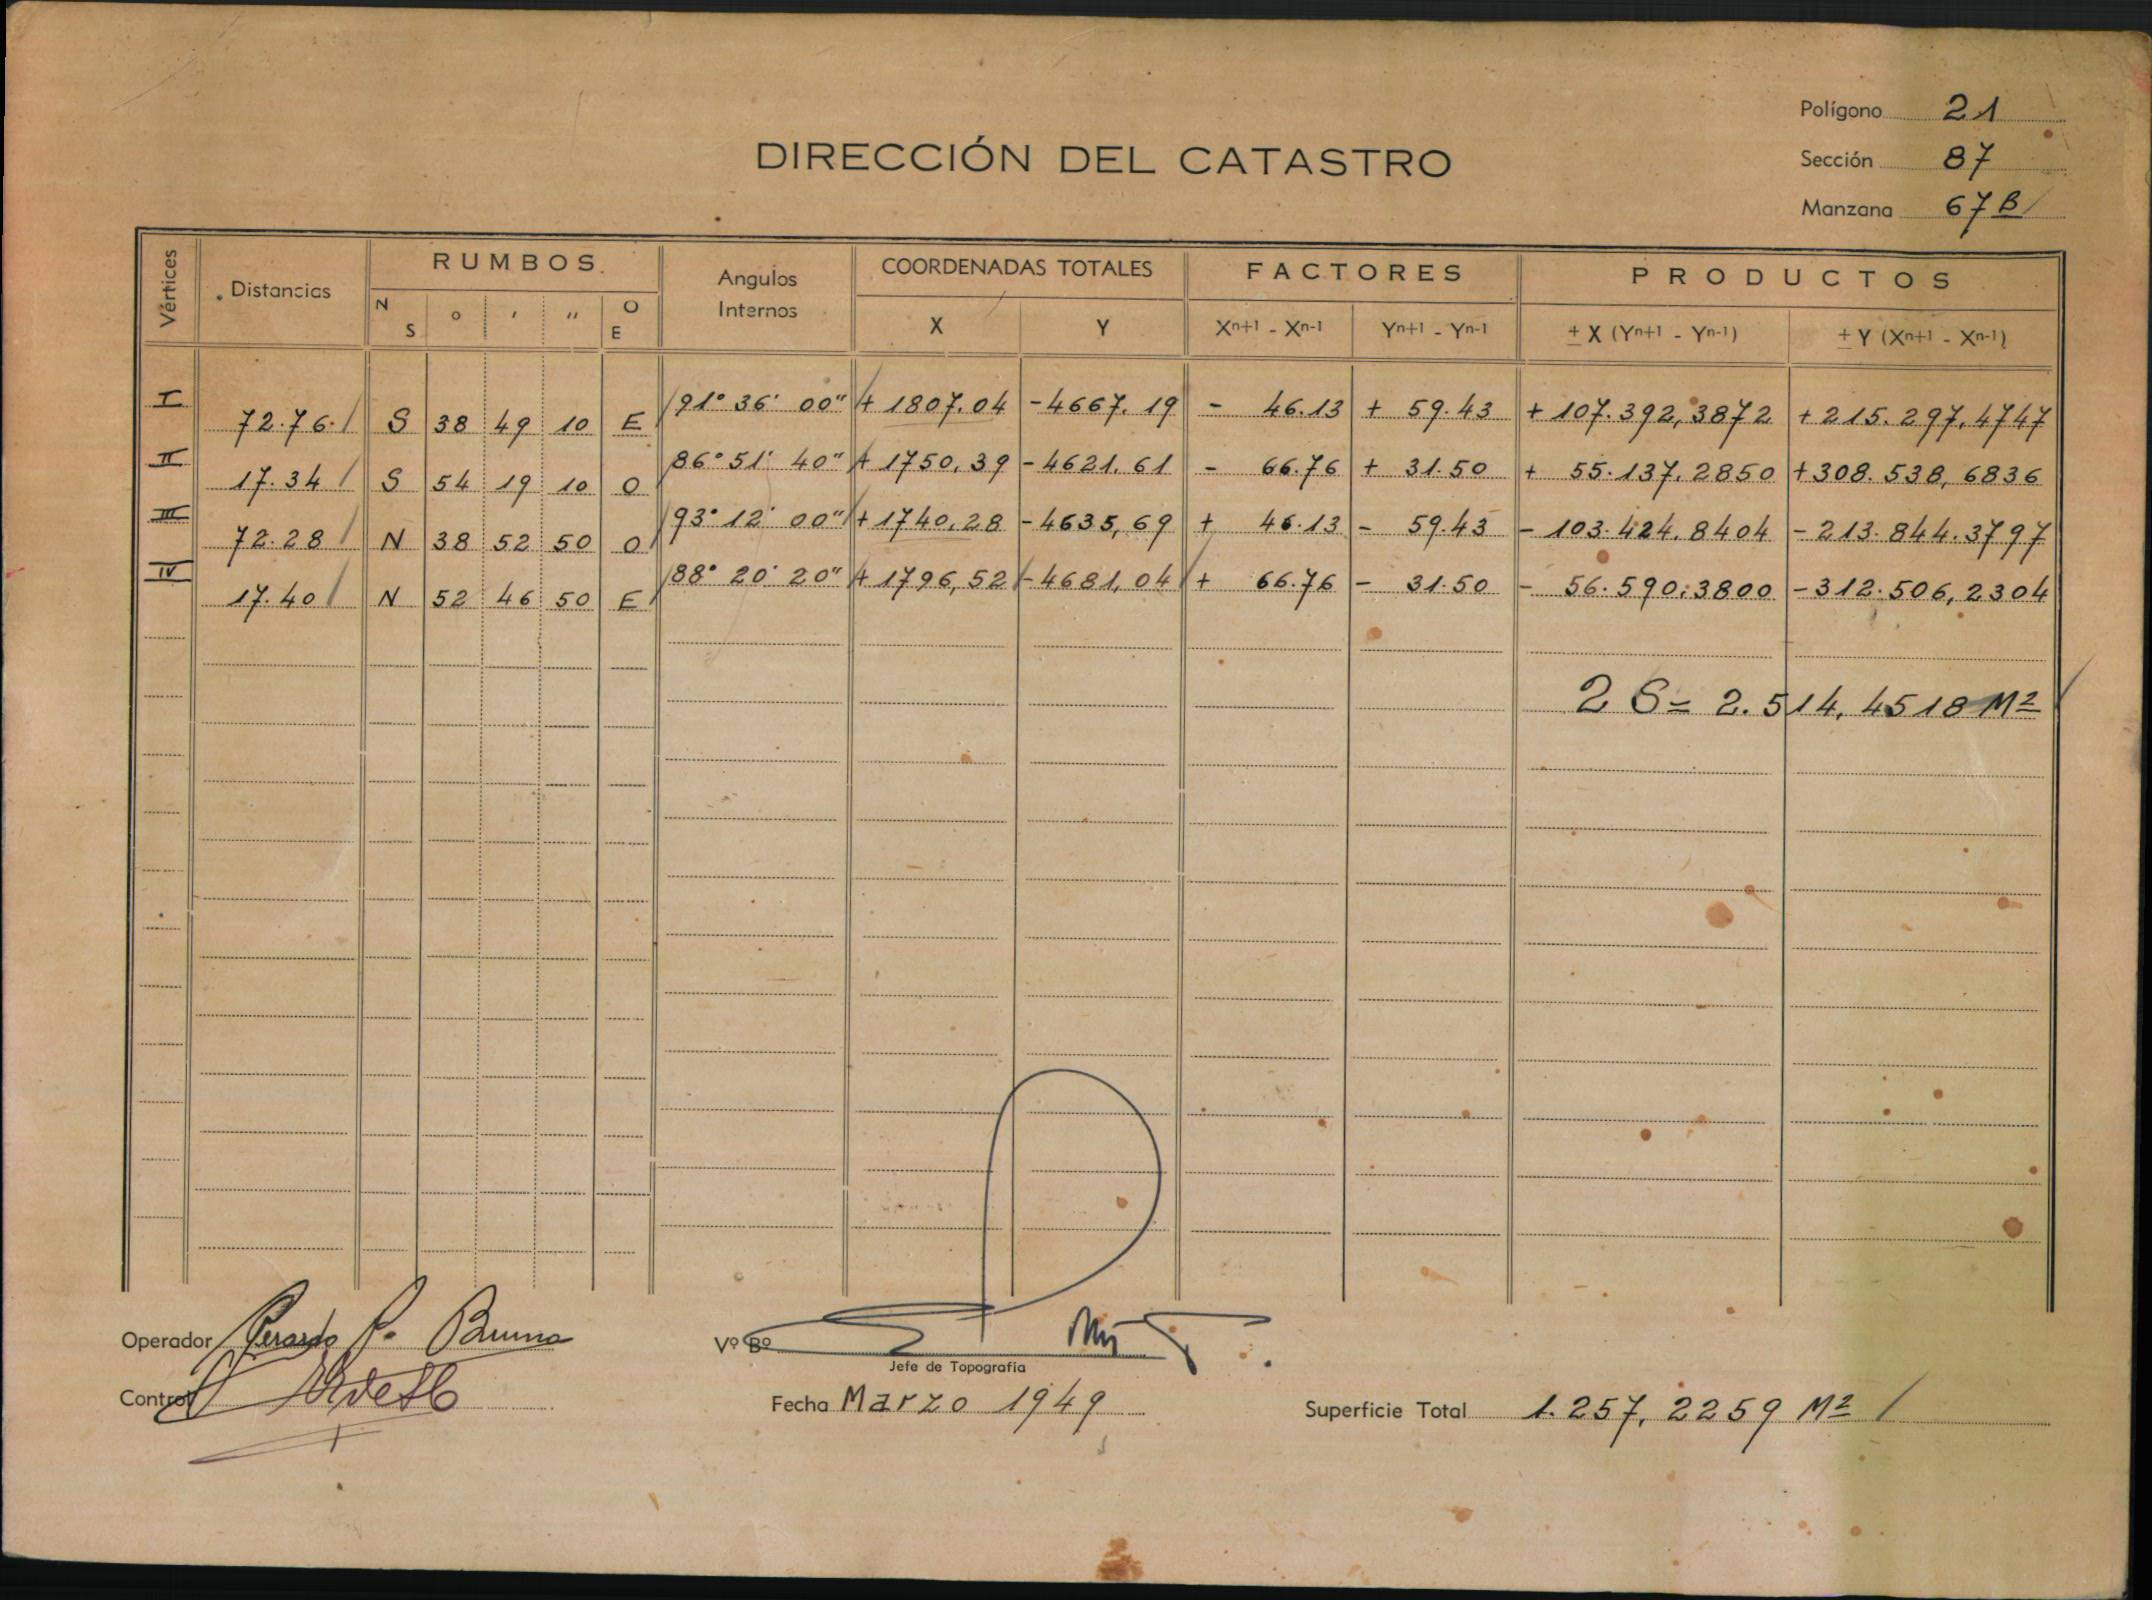 Polígono 21
DIRECCIÓN DEL CATASTRO
Sección 87
Manzana 67B
Vértices Distancias RUMBOS Angulos Internos COORDENADAS TOTALES FACTORES PRODUCTOS
N S ° ' " O E X Y Xn+1 - Xn-1 Yn+1 - Yn-1 ± X (Yn+1 - Yn-1) ± Y (Xn+1 - Xn-1)
I 72.76 S 38 49 10 E 91° 36' 00" + 1807.04 - 4667.19 - 46.13 + 59.43 + 107.392,3872 + 215.297,4747
II 17.34 S 54 19 10 O 86° 51' 40" + 1750,39 - 4621.61 - 66.76 + 31.50 + 55.137,2850 + 308.538,6836
III 72.28 N 38 52 50 O 93° 12' 00" + 1740,28 - 4635,69 + 46.13 - 59.43 - 103.424.8404 - 213.844.3797
IV 17.40 N 52 46 50 E 88° 20' 20" + 1796,52 - 4681,04 + 66.76 - 31.50 - 56.590,3800 - 312.506,2304
2 S = 2.514,4518 M²
Operador P. Bruno
Vº Bº
Jefe de Topografía
Control
Fecha Marzo 1949
Superficie Total 1.257,2259 M²